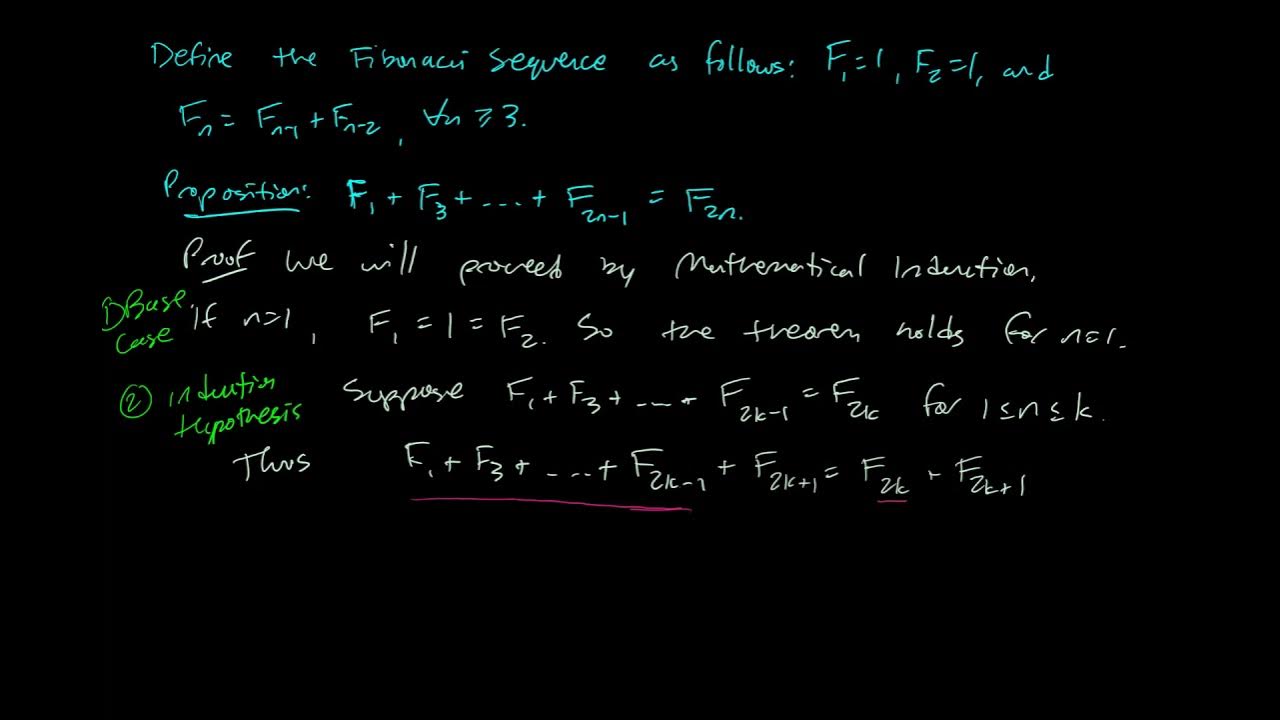 Define the Fibonacci Sequence as follows: F₁=1, F₂=1, and
Fₙ = Fₙ₋₁ + Fₙ₋₂, ∀n ≥ 3.
Proposition: F₁ + F₃ + ... + F₂ₙ₋₁ = F₂ₙ.
Proof We will proceed by Mathematical Induction.
① Base Case If n=1, F₁ = 1 = F₂. So the theorem holds for n=1.
② Induction Hypothesis Suppose F₁ + F₃ + ... + F₂ₖ₋₁ = F₂ₖ for 1 ≤ n ≤ k.
Thus F₁ + F₃ + ... + F₂ₖ₋₁ + F₂ₖ₊₁ = F₂ₖ + F₂ₖ₊₁